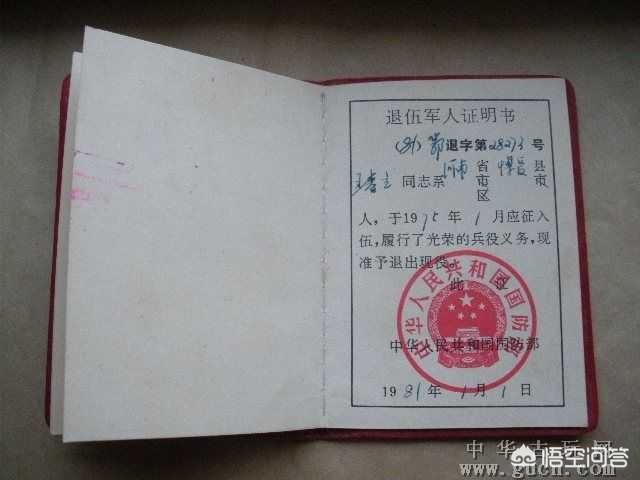 退伍军人证明书
(81)鄂退字第28273号
同志系河南省 县
市 市
区
人，于1975年1月应征入
伍，履行了光荣的兵役义务，现
准予退出现役。
此证
中华人民共和国国防部
中华人民共和国国防部
1981年1月1日
中华古玩网
www.gucn.com
悟空问答